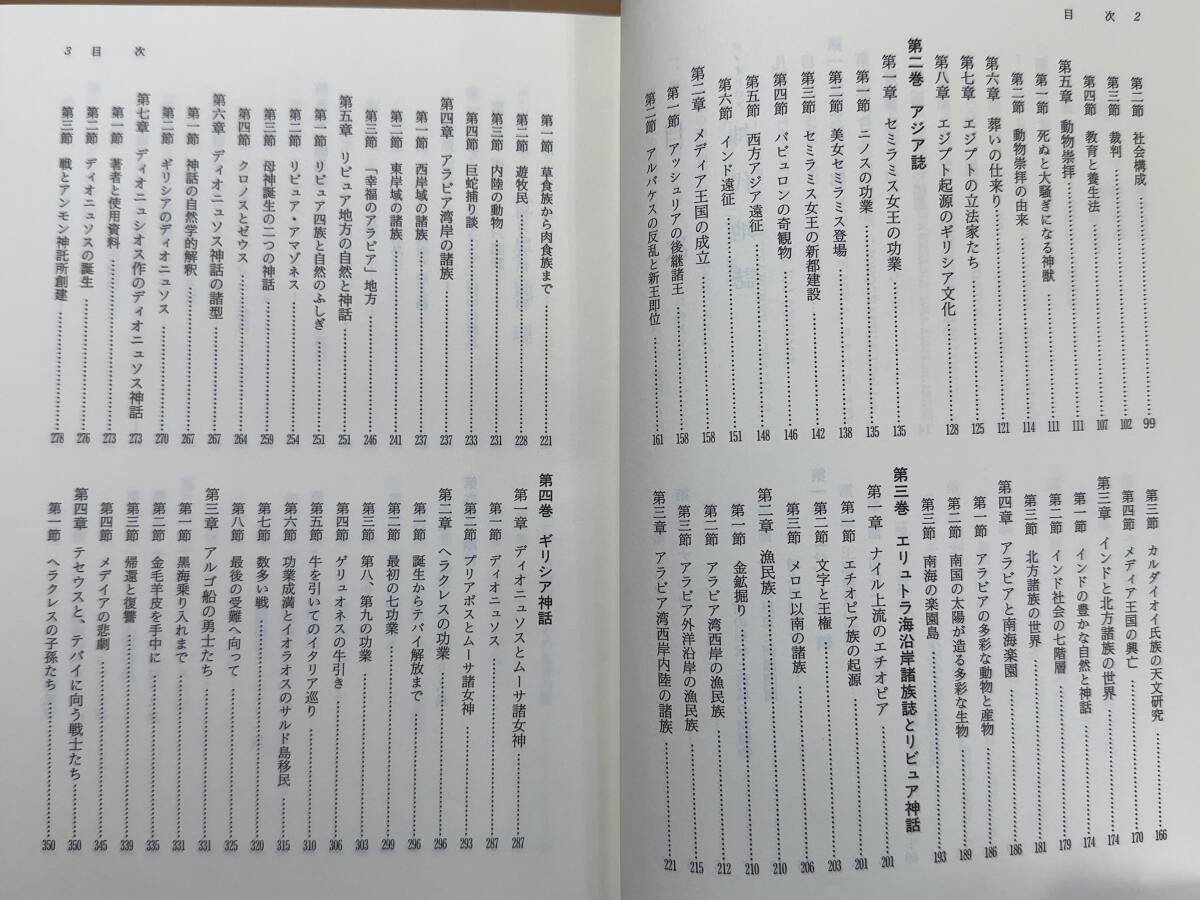 目次 2
第二節 社会構成 99
第三節 裁判 102
第四節 教育と養生法 107
第五章 動物崇拝 111
第一節 死ぬと大騒ぎになる神獣 111
第二節 動物崇拝の由来 114
第六章 葬いの仕来り 121
第七章 エジプトの立法家たち 125
第八章 エジプト起源のギリシア文化 128
第二巻 アジア誌
第一章 セミラミス女王の功業 135
第一節 ニノスの功業 135
第二節 美女セミラミス登場 138
第三節 セミラミス女王の新都建設 142
第四節 バビュロンの奇観物 146
第五節 西方アジア遠征 148
第六節 インド遠征 151
第二章 メディア王国の成立 158
第一節 アッシュリアの後継諸王 158
第二節 アルバケスの反乱と新王即位 161
第三節 カルダイオイ氏族の天文研究 166
第四節 メディア王国の興亡 170
第三章 インドと北方諸族の世界 174
第一節 インドの豊かな自然と神話 174
第二節 インド社会の七階層 179
第三節 北方諸族の世界 181
第四章 アラビアと南海楽園 186
第一節 アラビアの多彩な動物と産物 186
第二節 南国の太陽が造る多彩な生物 189
第三節 南海の楽園島 193
第三巻 エリュトラ海沿岸諸族誌とリビュア神話
第一章 ナイル上流のエチオピア 201
第一節 エチオピア族の起源 201
第二節 文字と王権 203
第三節 メロエ以南の諸族 206
第二章 漁民族 210
第一節 金鉱掘り 210
第二節 アラビア湾西岸の漁民族 212
第三節 アラビア外洋沿岸の漁民族 215
第三章 アラビア湾西岸内陸の諸族 221
3 目次
第一節 草食族から肉食族まで 221
第二節 遊牧民 228
第三節 内陸の動物 231
第四節 巨蛇捕り談 233
第四章 アラビア湾岸の諸族 237
第一節 西岸域の諸族 237
第二節 東岸域の諸族 241
第三節 「幸福のアラビア」地方 246
第五章 リビュア地方の自然と神話 251
第一節 リビュア四族と自然のふしぎ 251
第二節 リビュア・アマゾネス 254
第三節 母神誕生の二つの神話 259
第四節 クロノスとゼウス 264
第六章 ディオニュソス神話の諸型 267
第一節 神話の自然学的解釈 267
第二節 ギリシアのディオニュソス 270
第七章 ディオニュシオス作のディオニュソス神話 273
第一節 著者と使用資料 273
第二節 ディオニュソスの誕生 276
第三節 戦とアンモン神託所創建 278
第四巻 ギリシア神話
第一章 ディオニュソスとムーサ諸女神 287
第一節 ディオニュソス 287
第二節 プリアポスとムーサ諸女神 293
第二章 ヘラクレスの功業 296
第一節 誕生からテバイ解放まで 296
第二節 最初の七功業 299
第三節 第八、第九の功業 303
第四節 ゲリュオネスの牛引き 306
第五節 牛を引いてのイタリア巡り 310
第六節 功業成満とイオラオスのサルド島移民 315
第七節 数多い戦 320
第八節 最後の受難へ向って 325
第三章 アルゴ船の勇士たち 331
第一節 黒海乗り入れまで 331
第二節 金毛羊皮を手中に 335
第三節 帰還と復讐 339
第四節 メデイアの悲劇 345
第四章 テセウスと、テバイに向う戦士たち 350
第一節 ヘラクレスの子孫たち 350